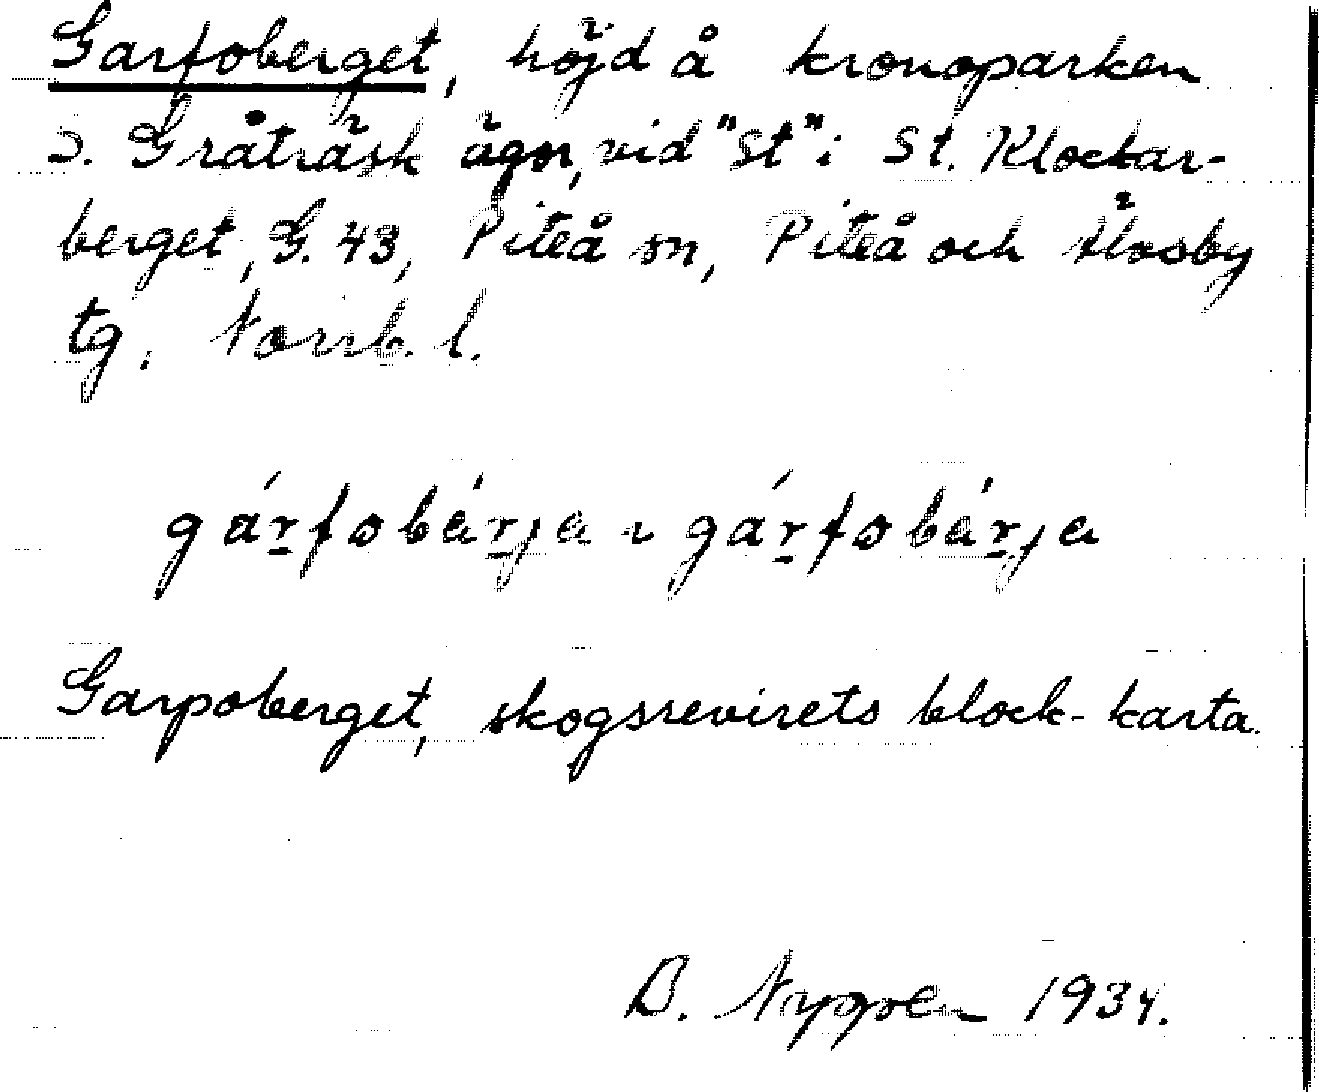 Garfoberget, höjd å kronoparken
S. Gråträsk ägor, vid "St" i St. Klockar-
berget, G. 43, Piteå sn, Piteå och Älvsby
tg. Norrb. l.
gárfobárja ~ gárfobárja
Garpoberget, skogsrevirets block-karta.
B. Nygren 1934.